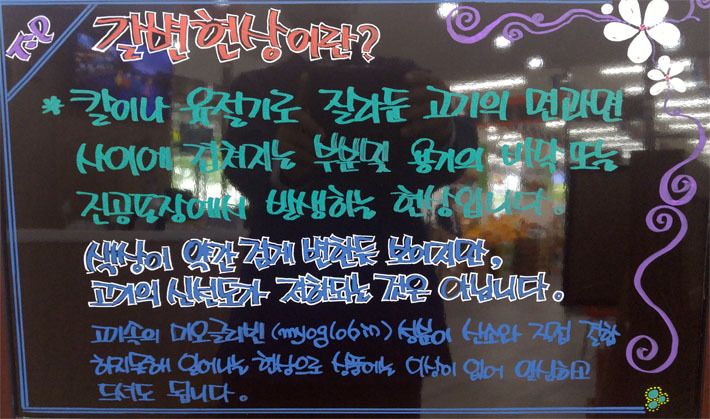 Tip
갈변현상이란?
* 칼이나 육절기로 잘라둔 고기의 면과면
사이에 겹쳐지는 부분및 용기의 바닥 또는
진공포장에서 발생하는 현상입니다.
색상이 약간 검게 변한듯 보이지만,
고기의 신선도가 저하되는 것은 아닙니다.
고기속의 미오글리빈(myoglobin) 성분이 산소와 직접 결합
하지못해 일어나는 현상으로 상품에는 이상이 없어 안심하고
드셔도 됩니다.